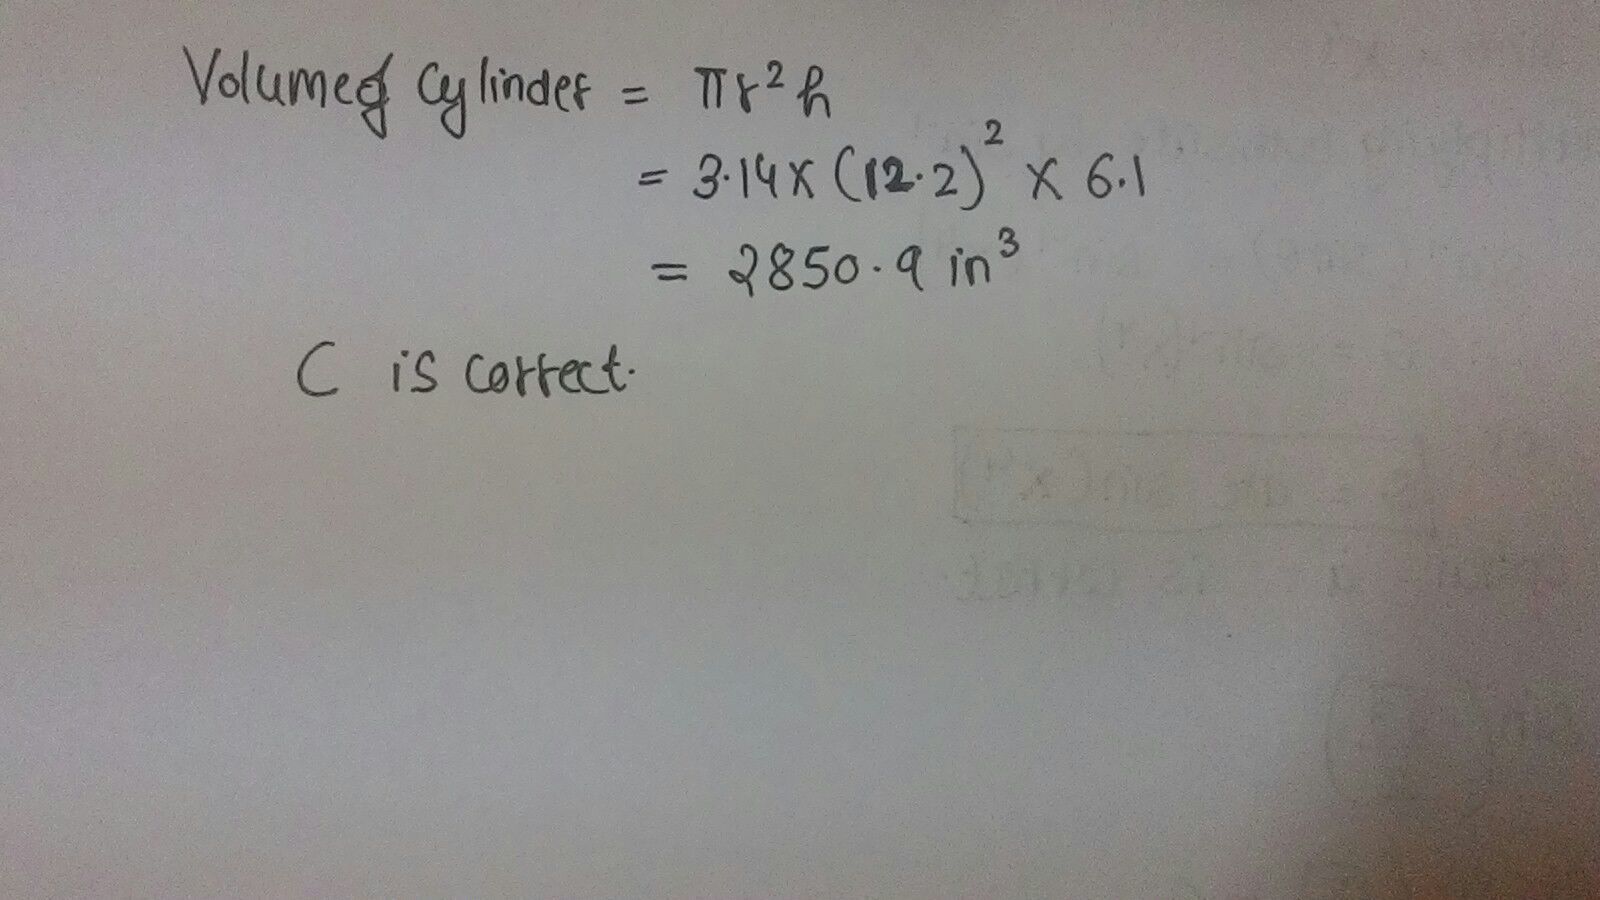 Volume of Cylinder = πr²h
= 3.14 x (12.2)² x 6.1
= 2850.9 in³
C is correct.